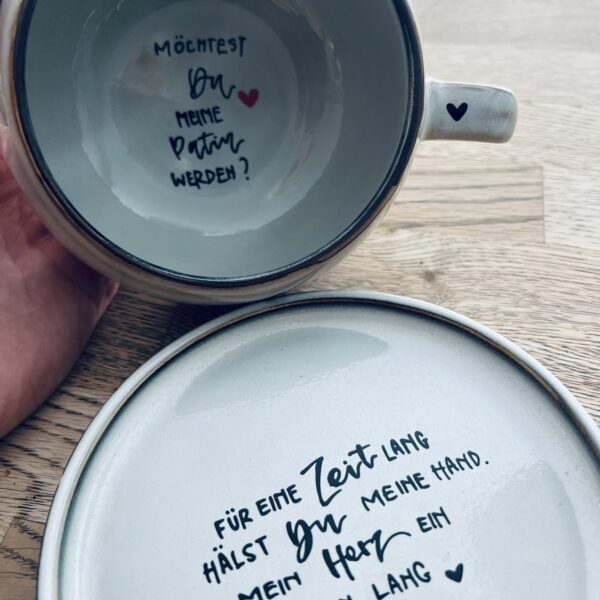 MÖCHTEST
Du
MEINE
Patin
WERDEN?
FÜR EINE Zeit LANG
HÄLST Du MEINE HAND.
MEIN Herz EIN
LANG